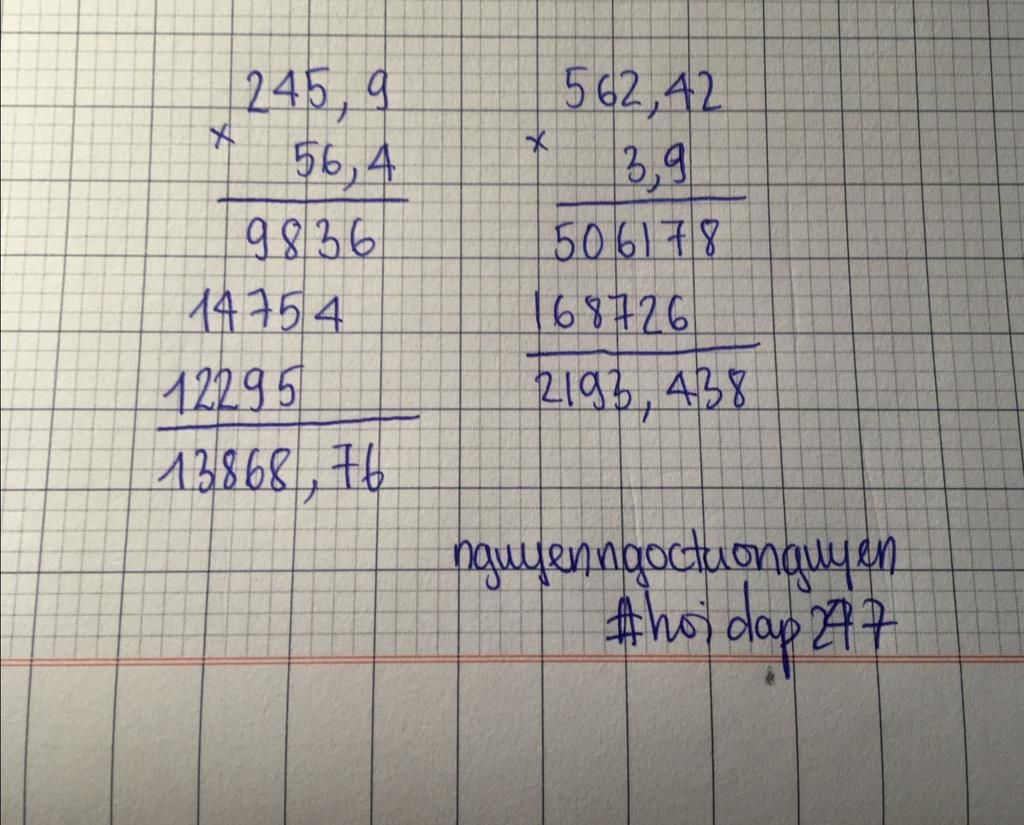 245,9
× 56,4
9836
14754
12295
13868,76
562,42
× 3,9
506178
168726
2193,438
nguyenngoctuonguyen
#hoidap247